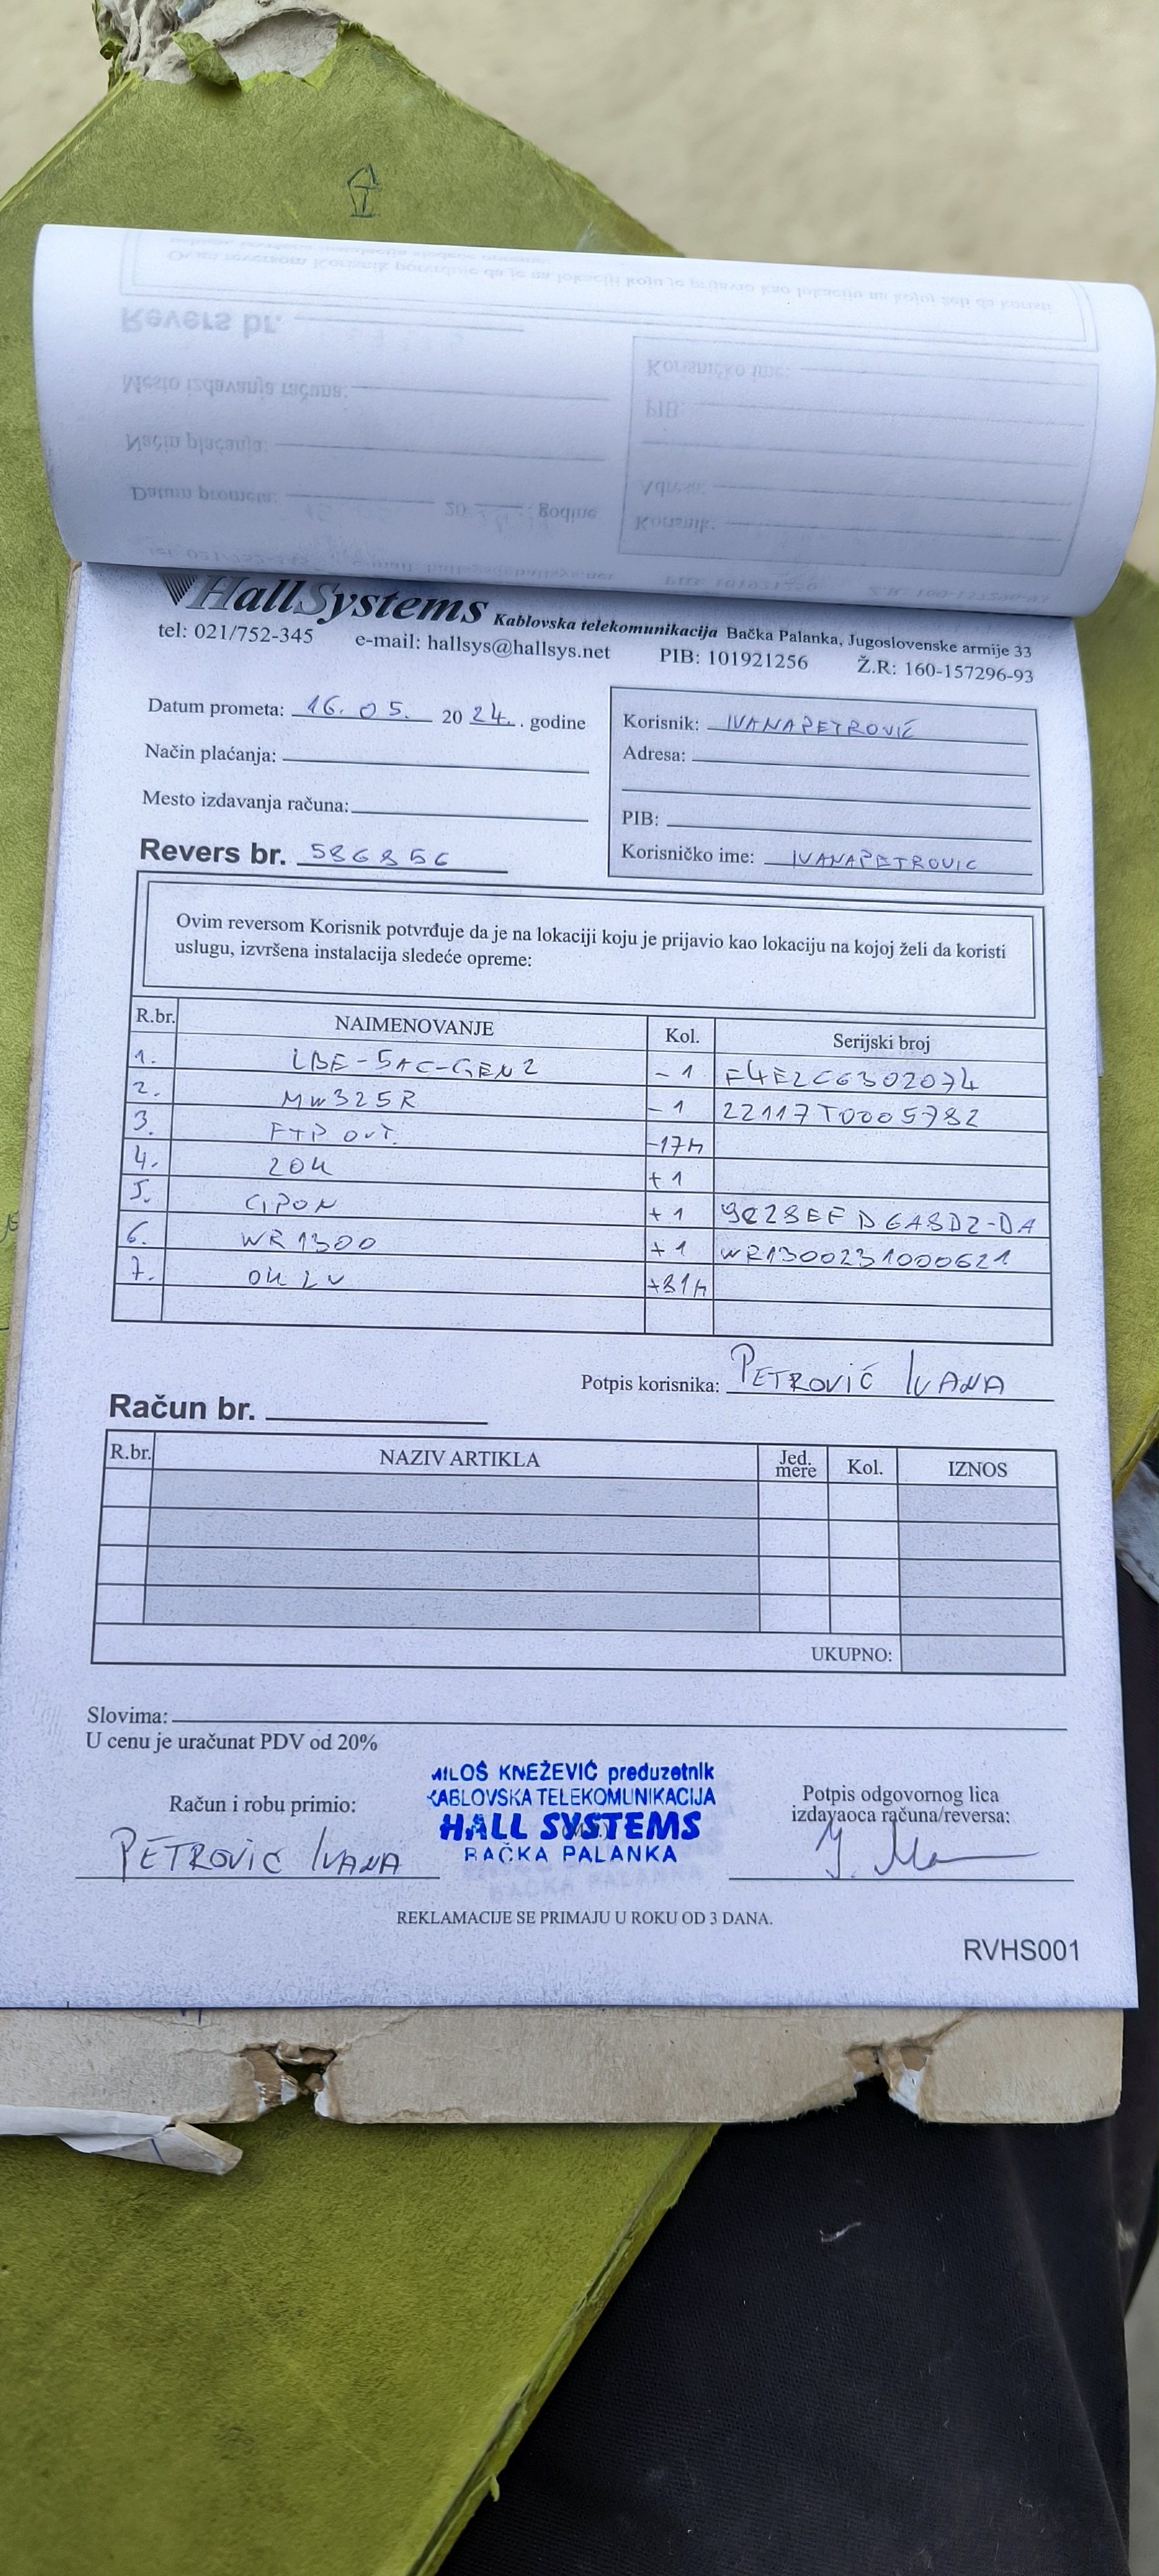 HallSystems Kablovska telekomunikacija Bačka Palanka, Jugoslovenske armije 33
tel: 021/752-345 e-mail: hallsys@hallsys.net PIB: 101921256 Ž.R: 160-157296-93
Datum prometa: 16.05. 2024. godine
Način plaćanja:
Mesto izdavanja računa:
Revers br. 586856
Korisnik: IVANAPETROVIĆ
Adresa:
PIB:
Korisničko ime: IVANAPETROVIC
Ovim reversom Korisnik potvrđuje da je na lokaciji koju je prijavio kao lokaciju na kojoj želi da koristi
uslugu, izvršena instalacija sledeće opreme:
R.br. NAIMENOVANJE Kol. Serijski broj
1. LBE-5AC-GEN2 -1 F4E2C6302074
2. MW325R -1 22117T0005782
3. FTP OUT. -17m
4. ZOK +1
5. GPON +1
6. WR1300 +1 WR1300231000621
7. +81m
Potpis korisnika: PETROVIĆ IVANA
Račun br.
R.br. NAZIV ARTIKLA Jed. mere Kol. IZNOS
UKUPNO:
Slovima:
U cenu je uračunat PDV od 20%
Račun i robu primio:
PETROVIĆ IVANA
MILOŠ KNEŽEVIĆ preduzetnik
KABLOVSKA TELEKOMUNIKACIJA
HALL SYSTEMS
BAČKA PALANKA
Potpis odgovornog lica
izdavaoca računa/reversa:
REKLAMACIJE SE PRIMAJU U ROKU OD 3 DANA.
RVHS001